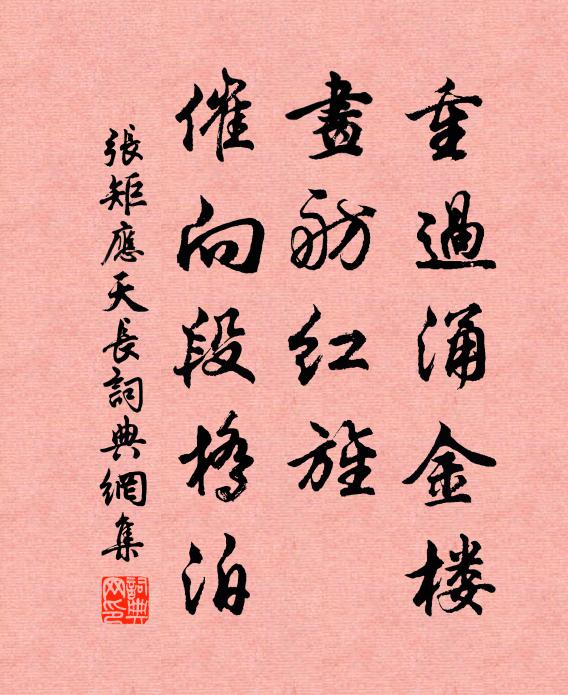 重過涌金楼
畫舫紅旌
催向段橋泊
張矩應天長詞典網集
詞典網印